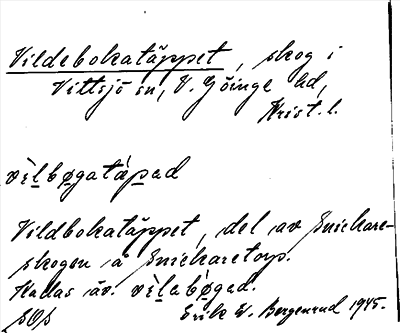 Vildebokatäppet, skog i
Vittsjö sn, V. Göinge hd,
Krist. l.
vèlbøgatápad
Vildbokatäppet, del av Snickare-
skogen å Snickaretorp.
Kallas äv. vèlabǿgad.
Erik W. Bergenrud 1945.